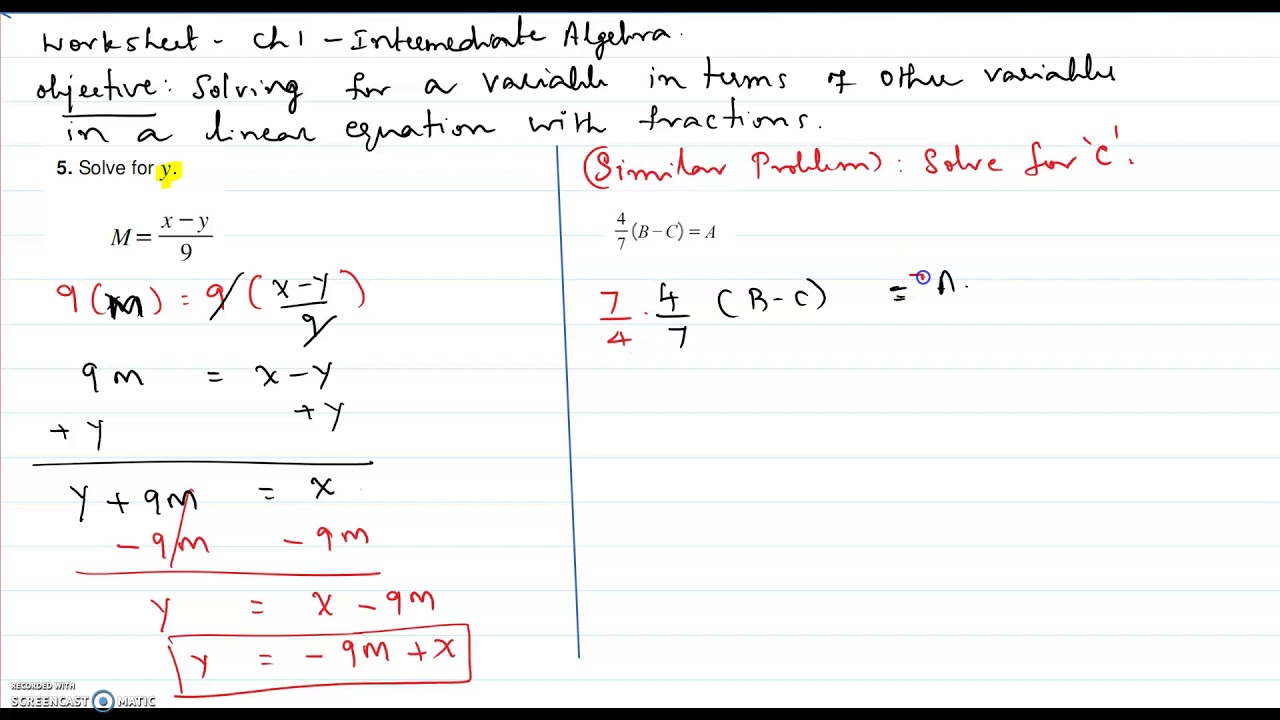 Worksheet - Ch 1 - Intermediate Algebra.
Objective: Solving for a variable in terms of other variables
in a linear equation with fractions.
5. Solve for y.
M = (x - y)/9
9(m) = 9((x - y)/9)
9m = x - y
+ y + y
y + 9m = x
- 9m - 9m
y = x - 9m
y = - 9m + x
(Similar Problem): Solve for 'C'.
4/7 (B - C) = A
7/4 · 4/7 (B - C) = A.
RECORDED WITH
SCREENCAST MATIC